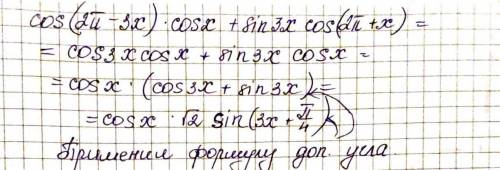 cos(2π - 3x) · cosx + sin3x cos(2π + x) =
= cos3x cosx + sin3x cosx =
= cosx · (cos3x + sin3x) =
= cosx · √2 sin(3x + π/4)
Применим формулу доп. угла